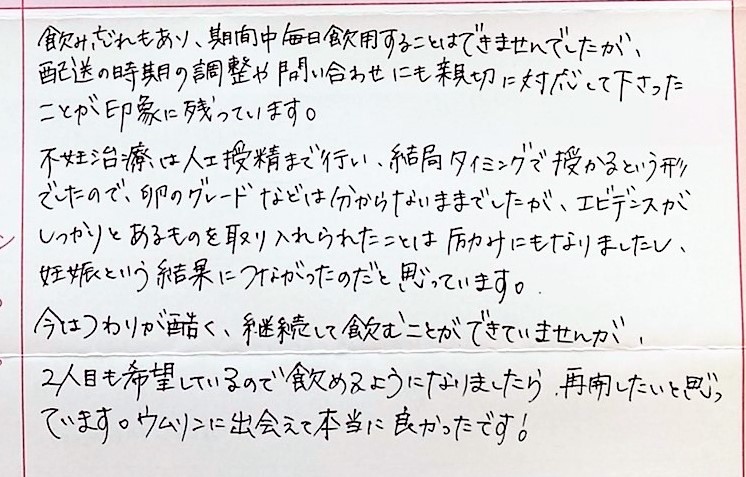 飲み忘れもあり、期間中毎日飲用することはできませんでしたが、
配送の時期の調整や問い合わせにも親切に対応して下さった
ことが印象に残っています。
不妊治療は人工授精まで行い、結局タイミングで授かるという形
でしたので、卵のグレードなどは分からないままでしたが、エビデンスが
しっかりとあるものを取り入れられたことは励みにもなりましたし、
妊娠という結果につながったのだと思っています。
今はつわりが酷く、継続して飲むことができていませんが、
2人目も希望しているので飲めるようになりましたら、再開したいと思っ
ています。ウムリンに出会えて本当に良かったです!